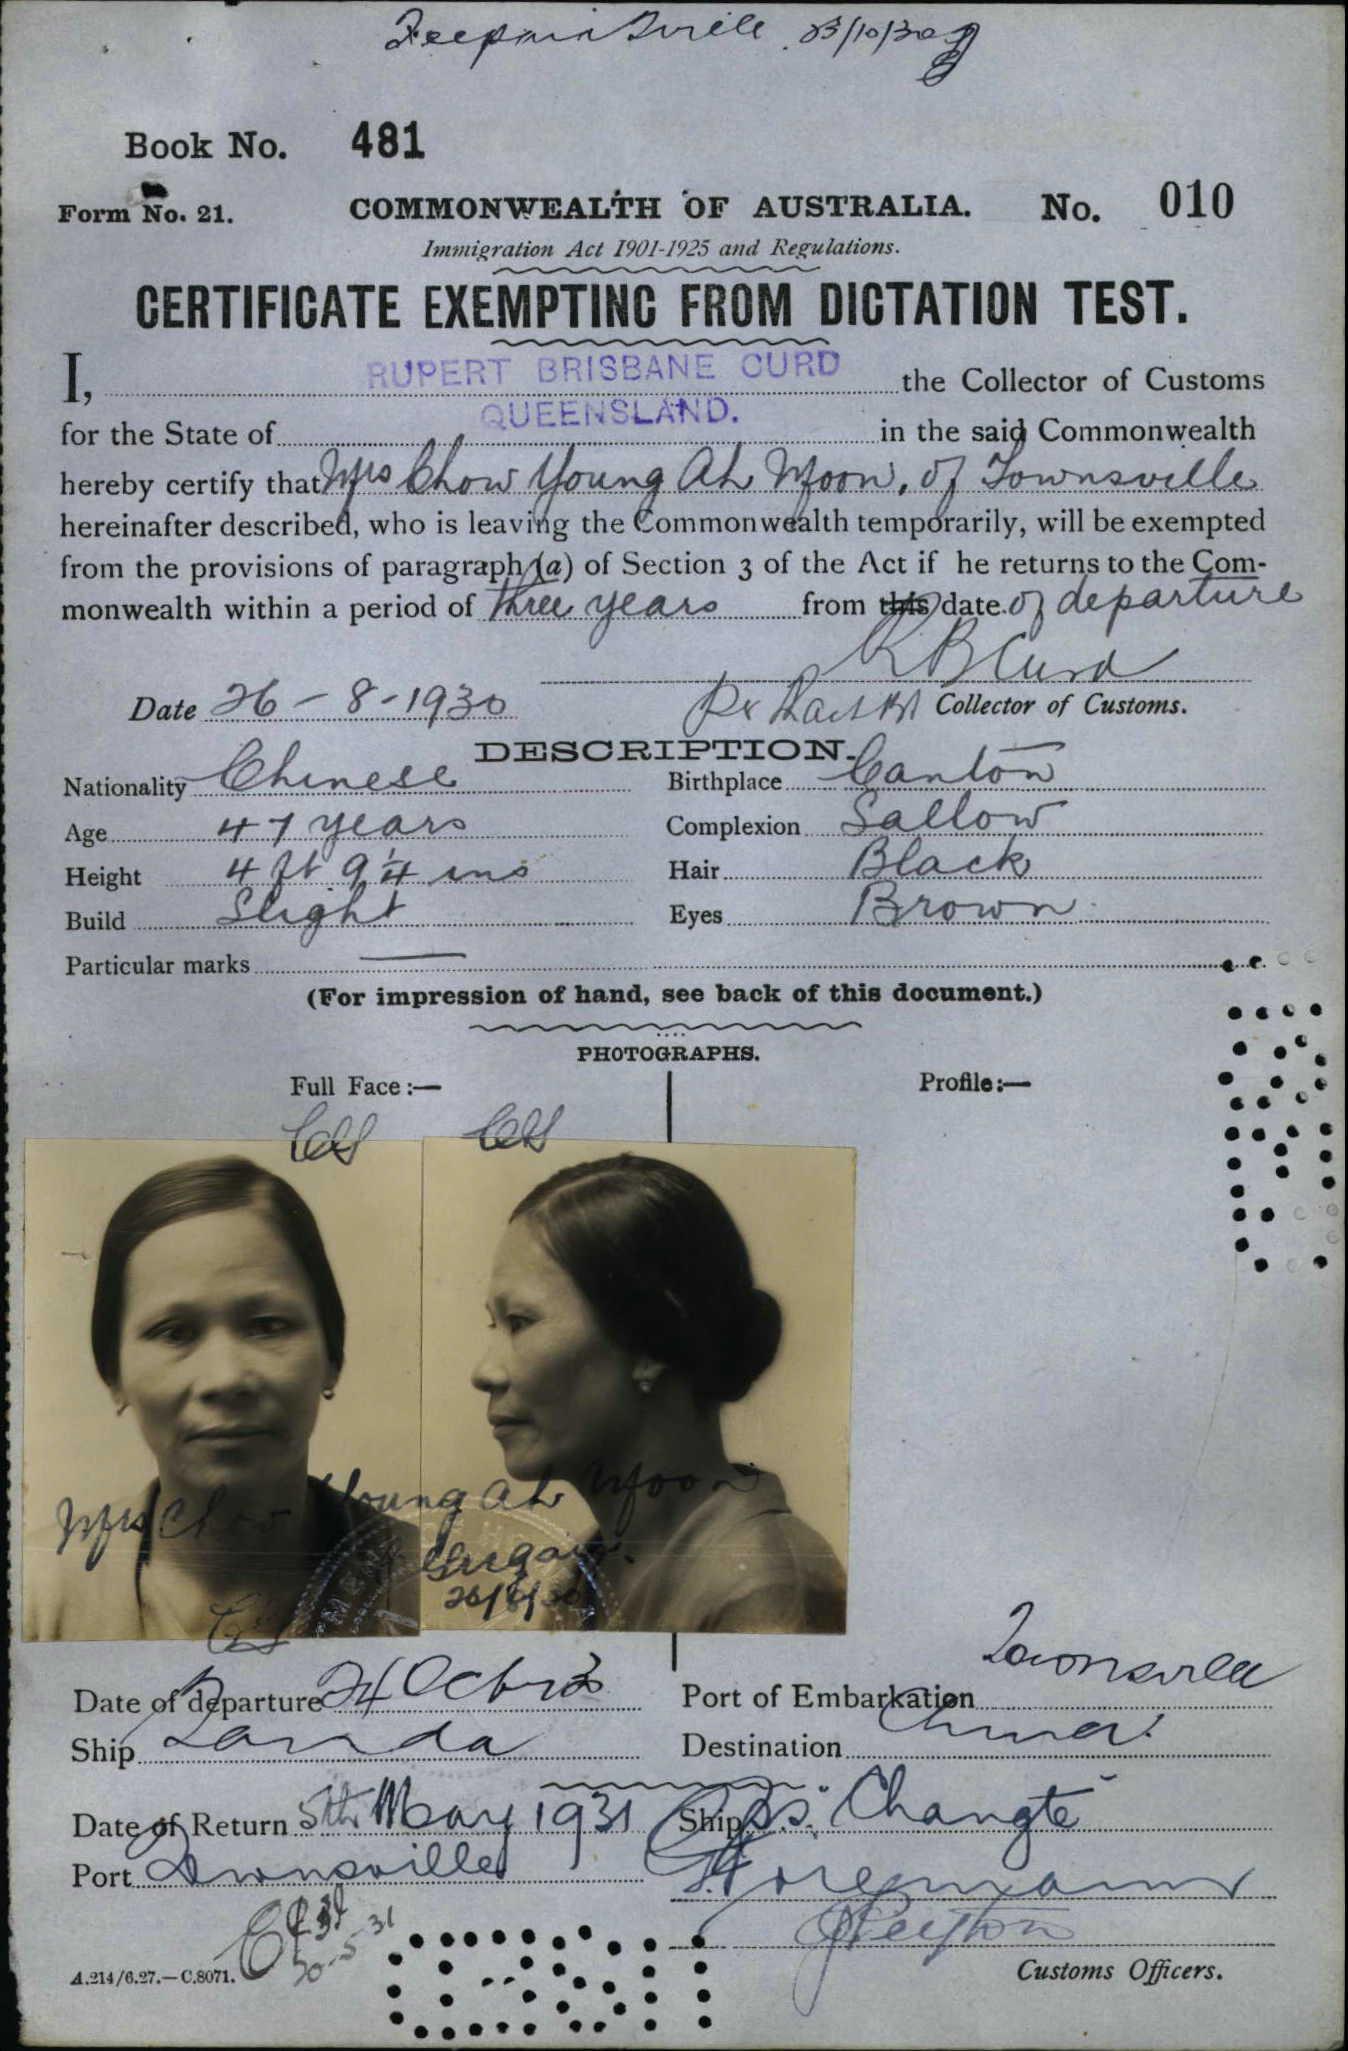 23/10/30
Book No. 481
Form No. 21. COMMONWEALTH OF AUSTRALIA. No. 010
Immigration Act 1901-1925 and Regulations.
CERTIFICATE EXEMPTING FROM DICTATION TEST.
I, RUPERT BRISBANE CURD the Collector of Customs
for the State of QUEENSLAND. in the said Commonwealth
hereby certify that Mrs Chow Young Ah Moon, of Townsville
hereinafter described, who is leaving the Commonwealth temporarily, will be exempted
from the provisions of paragraph (a) of Section 3 of the Act if he returns to the Com-
monwealth within a period of three years from this date of departure
R B Curd
Date 26-8-1930 Collector of Customs.
DESCRIPTION.
Nationality Chinese Birthplace Canton
Age 47 years Complexion Sallow
Height 4 ft 9 1/4 ins Hair Black
Build Slight Eyes Brown
Particular marks —
(For impression of hand, see back of this document.)
PHOTOGRAPHS.
Full Face:— Profile:—
Mrs Chow Young Ah Moon
26/8/30
Date of departure 24 Octbr 30 Port of Embarkation Townsville
Ship Tanda Destination China
Date of Return 5th May 1931 Ship S.S. "Changte"
Port Townsville
20-5-31
A.214/6.27.—C.8071. Customs Officers.